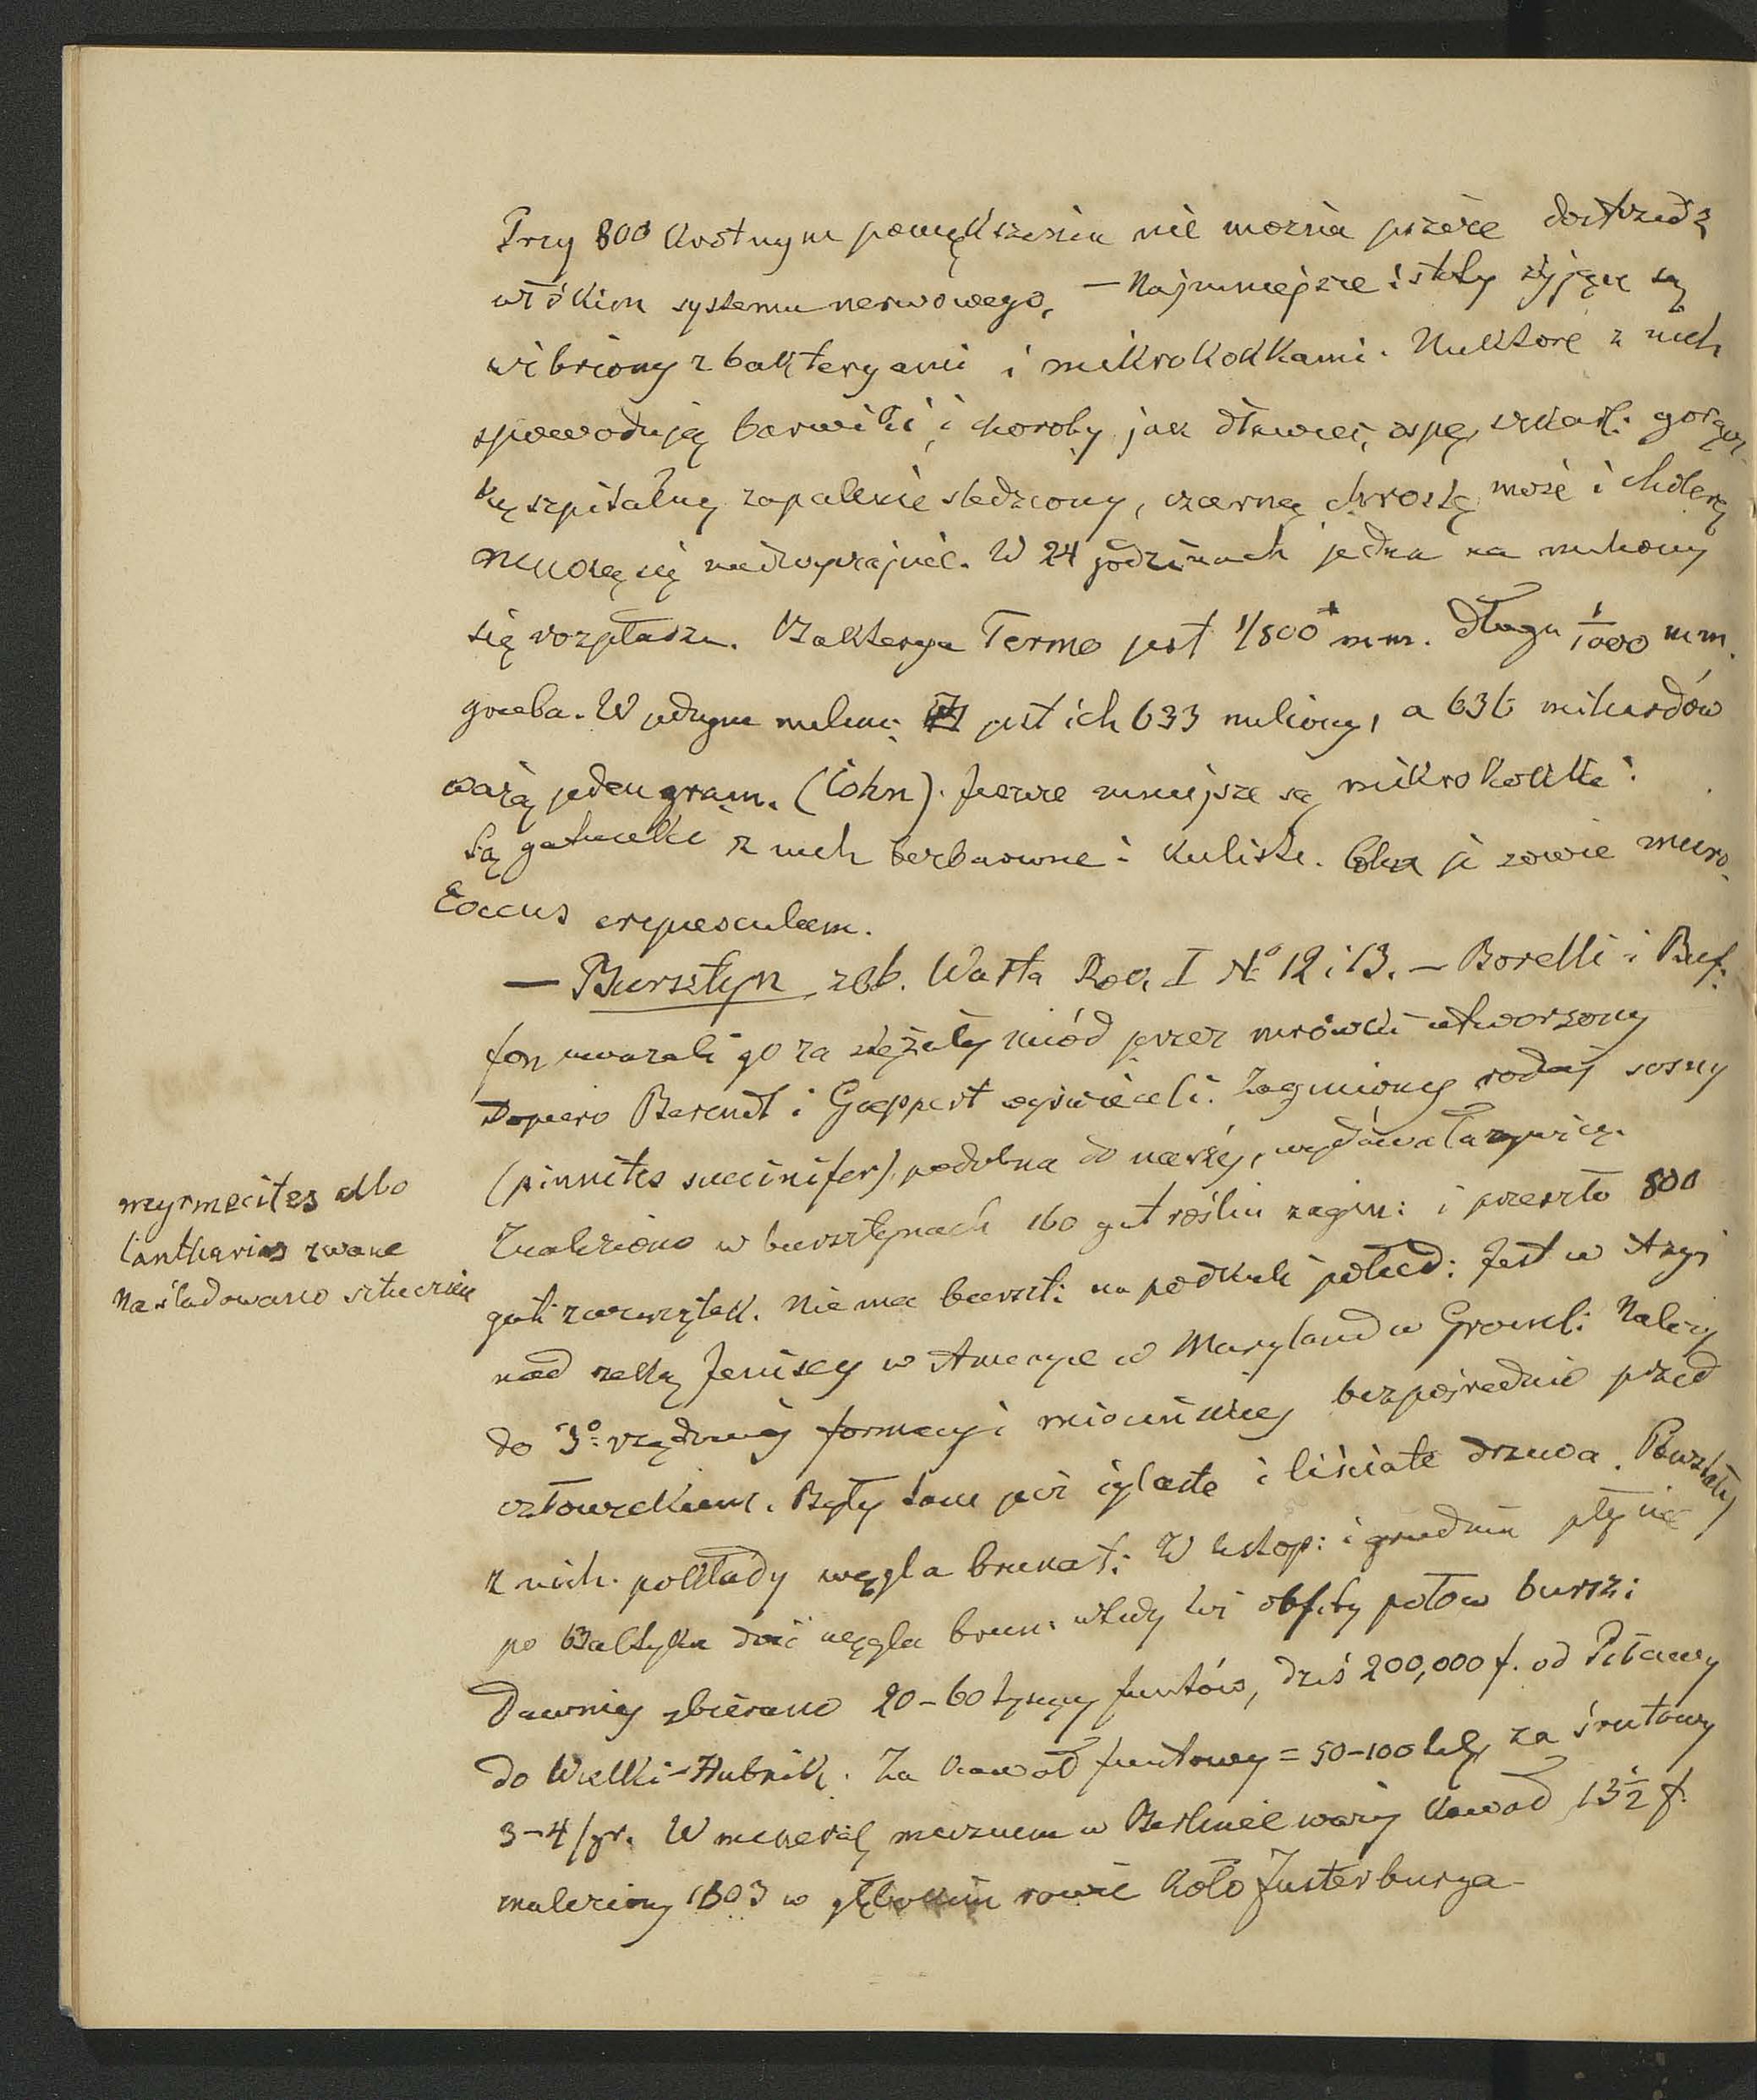 Przy 800 krotnym powiększeniu nie można jeszcze dostrzedz
włókien systemu nerwowego. — Najmniejsze istoty żyjące są
wibriony z bakteryami i mikrokokkami. Niektóre z nich
spowodują barwiki i choroby jak dławiec, ospę, szkarl: gorącz-
kę szpitalną zapalenie śledziony, czarną chrostę może i cholerę
mnożą się nadzwyczajnie. W 24 godzinach jedna na miliony
się rozpładza. Bakterya Termo jest 1/800 mm. długa 1/1000 mm.
gruba. W jednym milim: jest ich 633 miliony, a 636 miliardów
ważą jeden gram. (Cohn). Jeszcze mniejsze są mikrokokki.
Są gatunki z nich bezbarwne i kuliste. Cohn je zowie micro-
coccus crepusculum.
— Bursztyn zob. Warta Rocz. I No 12 i 13. — Borelli i Buf-
fon uważali go za stężały miód przez mrówki utworzony
Dopiero Berendt i Goeppert wyświecili. Zaginiony rodzaj sosny
(pinnites succinifer) podobna do naszéj, wydawała żywicę.
Znaleziono w bursztynach 160 gat roślin zagin: i przeszło 800
gat: zwierzątek. Nie ma burszt: na podkuli połud: Jest w Azyi
nad rzeką Jenisey w Ameryce w Maryland w Groenl: Należy
do 3o: rzędowej formacyi mioceńskiej bezpośrednio przed
człowiekiem. Były tam już iglaste i liściate drzewa. Powstały
z nich pokłady węgla brunat: W listop: i grudniu płynie
po Baltyku dość węgla brun: wtedy też obfity połów bursz:
Dawniej zbierano 20-60 tysięcy funtów, dziś 200,000 f. od Piławy
do Wielki-Hubnik. Za kawał funtowy = 50-100 tal, za śrutowy
3-4/gr. W mineral, muzeum w Berlinie waży kawał 13 1/2 f.
znaleziony 1803 w głębokim rowie koło Justerburga
myrmecites albo
cantharias zwane
Naśladowano sztucznie